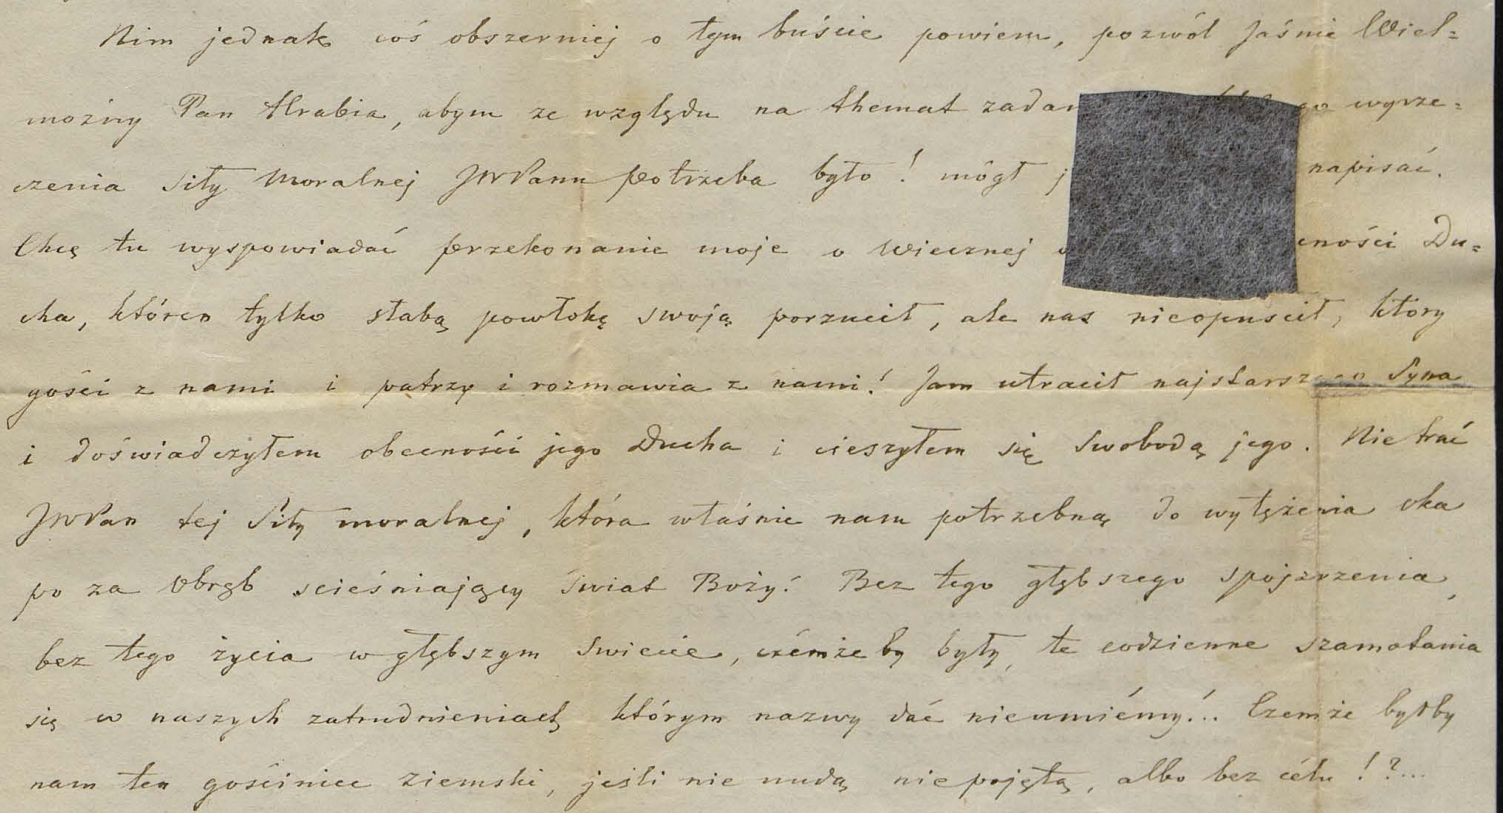 Nim jednak coś obszerniej o tym buście powiem, pozwól Jaśnie Wiel=
możny Pan Hrabia, abym ze względu na themat zadan wyrze=
czenia siły moralnej JWPanu potrzeba było! mógł j napisać.
Chcę tu wyspowiadać przekonanie moje o wiecznej o cności Du=
cha, któren tylko słabą powłokę swoją porzucił, ale nas nieopuscił, który
gości z nami i patrzy i rozmawia z nami! Jam utracił najstarszego Syna
i doświadczyłem obecności jego Ducha i cieszyłem się Swobodą jego. Nie trać
JWPan tej Siły moralnej, która właśnie nam potrzebną do wytężenia oka
po za Obręb scieśniający świat Boży! Bez tego głębszego spojzrzenia,
bez tego życia w głębszym Swiecie, czémże by były te codzienne szamotania
się w naszych zatrudnieniach którym nazwy dać nieumiémy!.. Czemże byłby
nam ten gościniec ziemski, jeśli nie nudą niepojętą, albo bez célu!?...